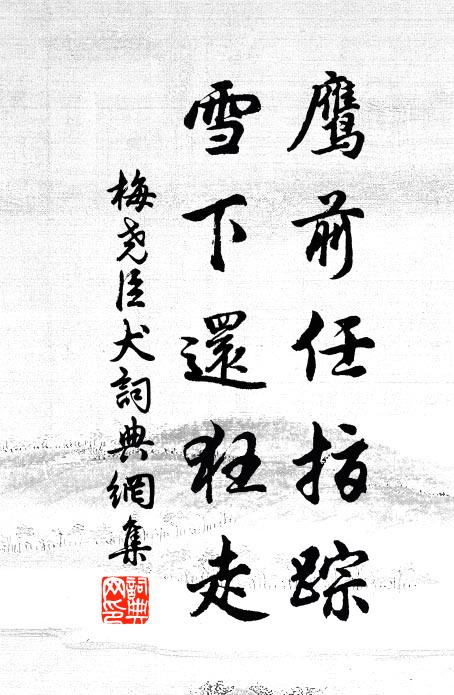 鹰前任指踪
雪下還狂走
梅尧臣犬詞典網集
詞典网印